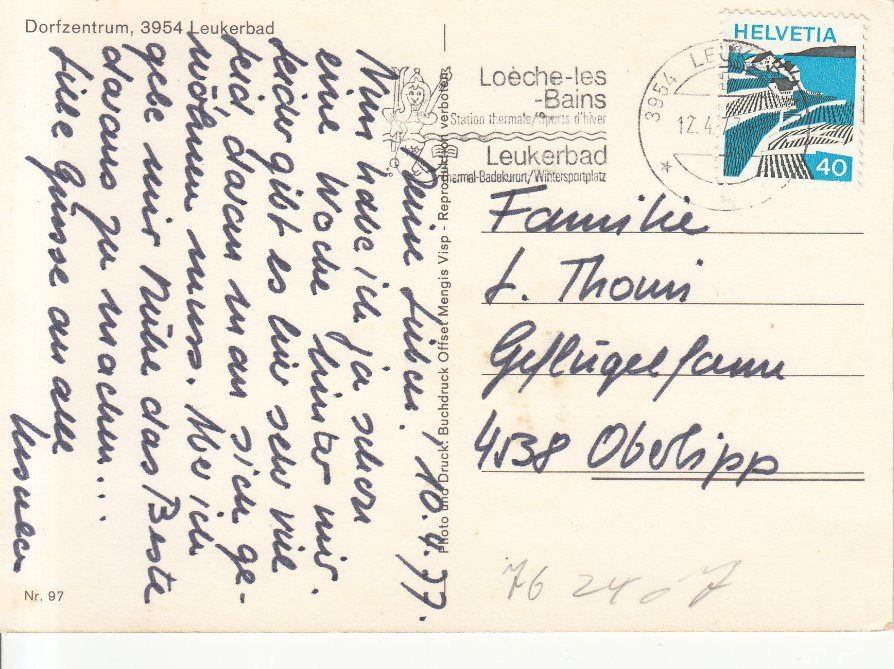 Dorfzentrum, 3954 Leukerbad
Meine Lieben! 10.4.77.
Nun habe ich ja schon
eine Woche hinter mir.
Leider gibt es hier sehr viel
Leid daran man sich ge-
wöhnen muss. Aber ich
gebe mir Mühe das Beste
daraus zu machen...
Liebe Grüsse an alle
Nr. 97
Photo und Druck: Buchdruck Offset Mengis Visp - Reproduktion verboten
Loèche-les
-Bains
Station thermale/Sports d'hiver
Leukerbad
Thermal-Badekurort/Wintersportplatz
3954 LEUK
12.4.77
HELVETIA
40
Familie
Thomi
Geflügelfarm
4538 Oberbipp
76 24 07